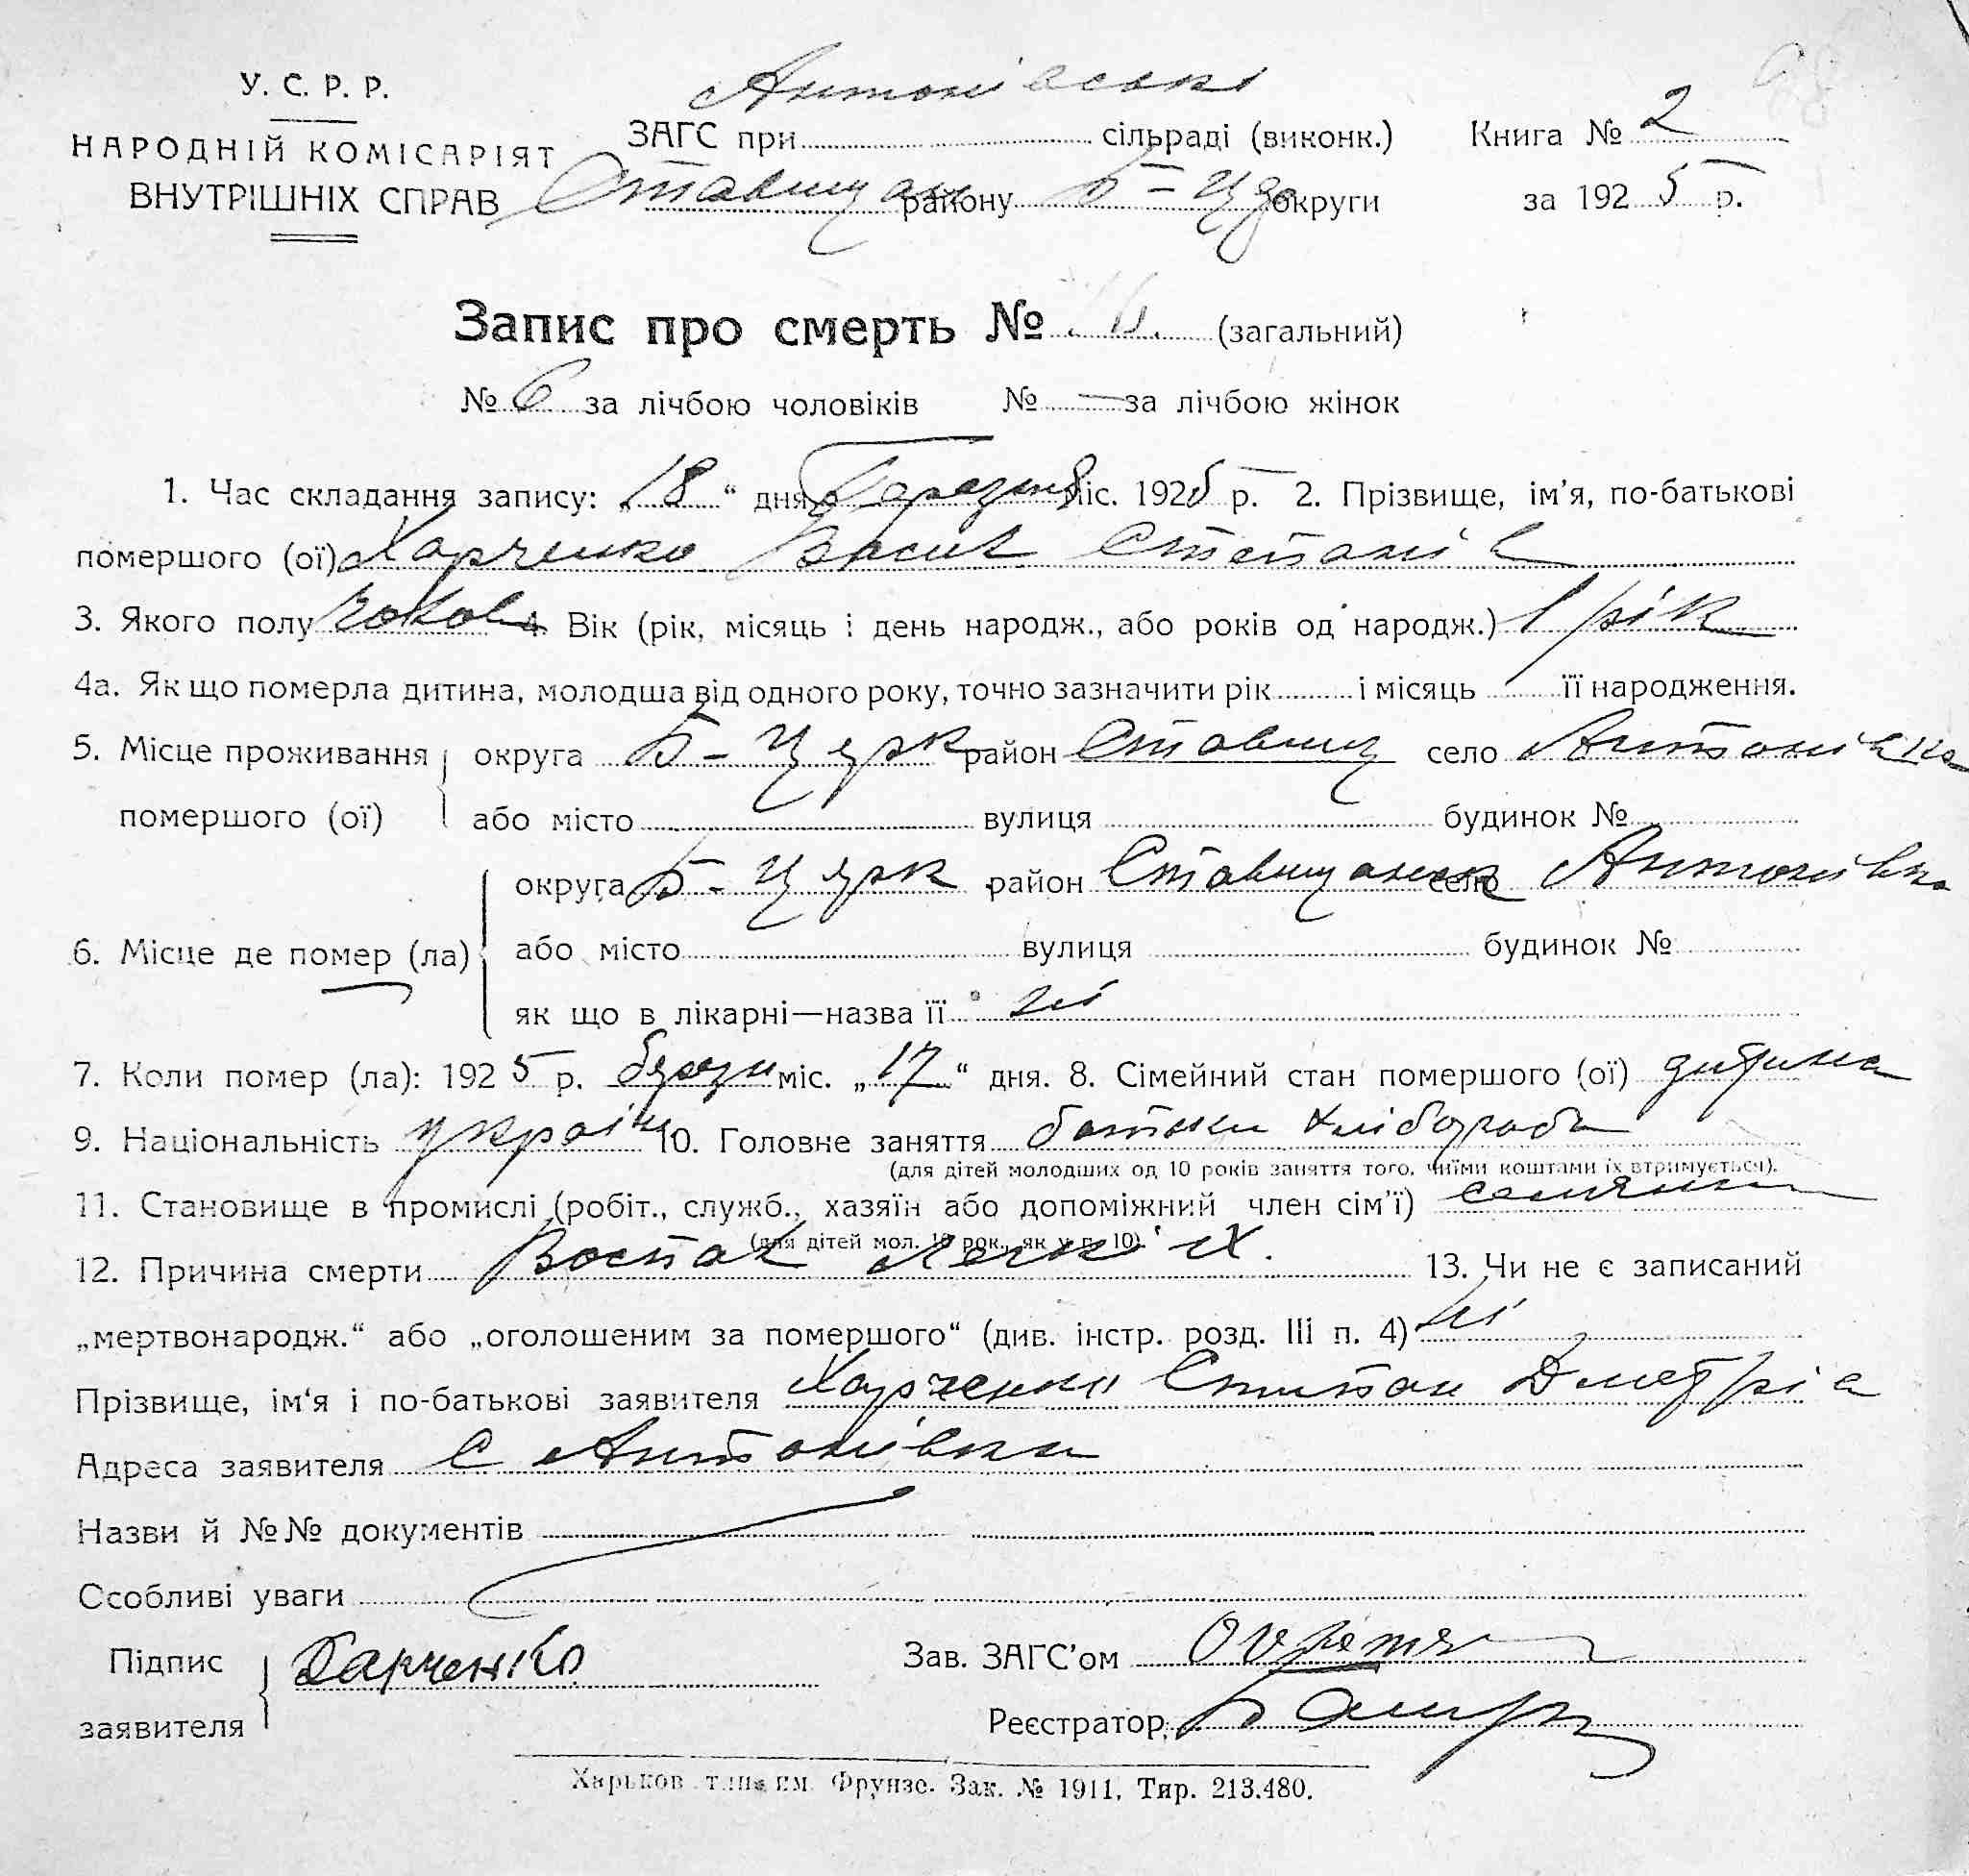 У. С. Р. Р.
НАРОДНІЙ КОМІСАРІЯТ
ВНУТРІШНІХ СПРАВ
Антонівські
ЗАГС при сільраді (виконк.) Книга № 2
Ставищан району Б-Ц округи за 1925 р.
Запис про смерть № (загальний)
№ 6 за лічбою чоловіків № — за лічбою жінок
1. Час складання запису: „18“ дня Березня міс. 1925 р. 2. Прізвище, ім'я, по-батькові
помершого (ої) Харченко Васил Степанів
3. Якого полу чолов 4. Вік (рік, місяць і день народж., або років од народж.) 1 рік
4а. Як що померла дитина, молодша від одного року, точно зазначити рік і місяць її народження.
5. Місце проживання помершого (ої) округа Б-Церк район Ставищ село Антонівка
або місто вулиця будинок №
6. Місце де помер (ла) округа Б-Церк район Ставищанск село Антонівка
або місто вулиця будинок №
як що в лікарні—назва її ні
7. Коли помер (ла): 1925 р. березн міс. „17“ дня. 8. Сімейний стан помершого (ої) дитина
9. Національність україн 10. Головне заняття батьки хлібороби
(для дітей молодших од 10 років заняття того, чиїми коштами їх втримується).
11. Становище в промислі (робіт., служб., хазяїн або допоміжний член сім'ї) селянин
(для дітей мол. 10 рок., як у п. 10)
12. Причина смерти Воспал легкіх. 13. Чи не є записаний
„мертвонародж.“ або „оголошеним за помершого“ (див. інстр. розд. III п. 4) ні
Прізвище, ім'я і по-батькові заявителя Харченко Степан Дметрів
Адреса заявителя с Антонівка
Назви й №№ документів
Особливі уваги
Підпис заявителя Харченко Зав. ЗАГС'ом
Реєстратор
Харьков тип. им. Фрунзе. Зак. № 1911, Тир. 213.480.